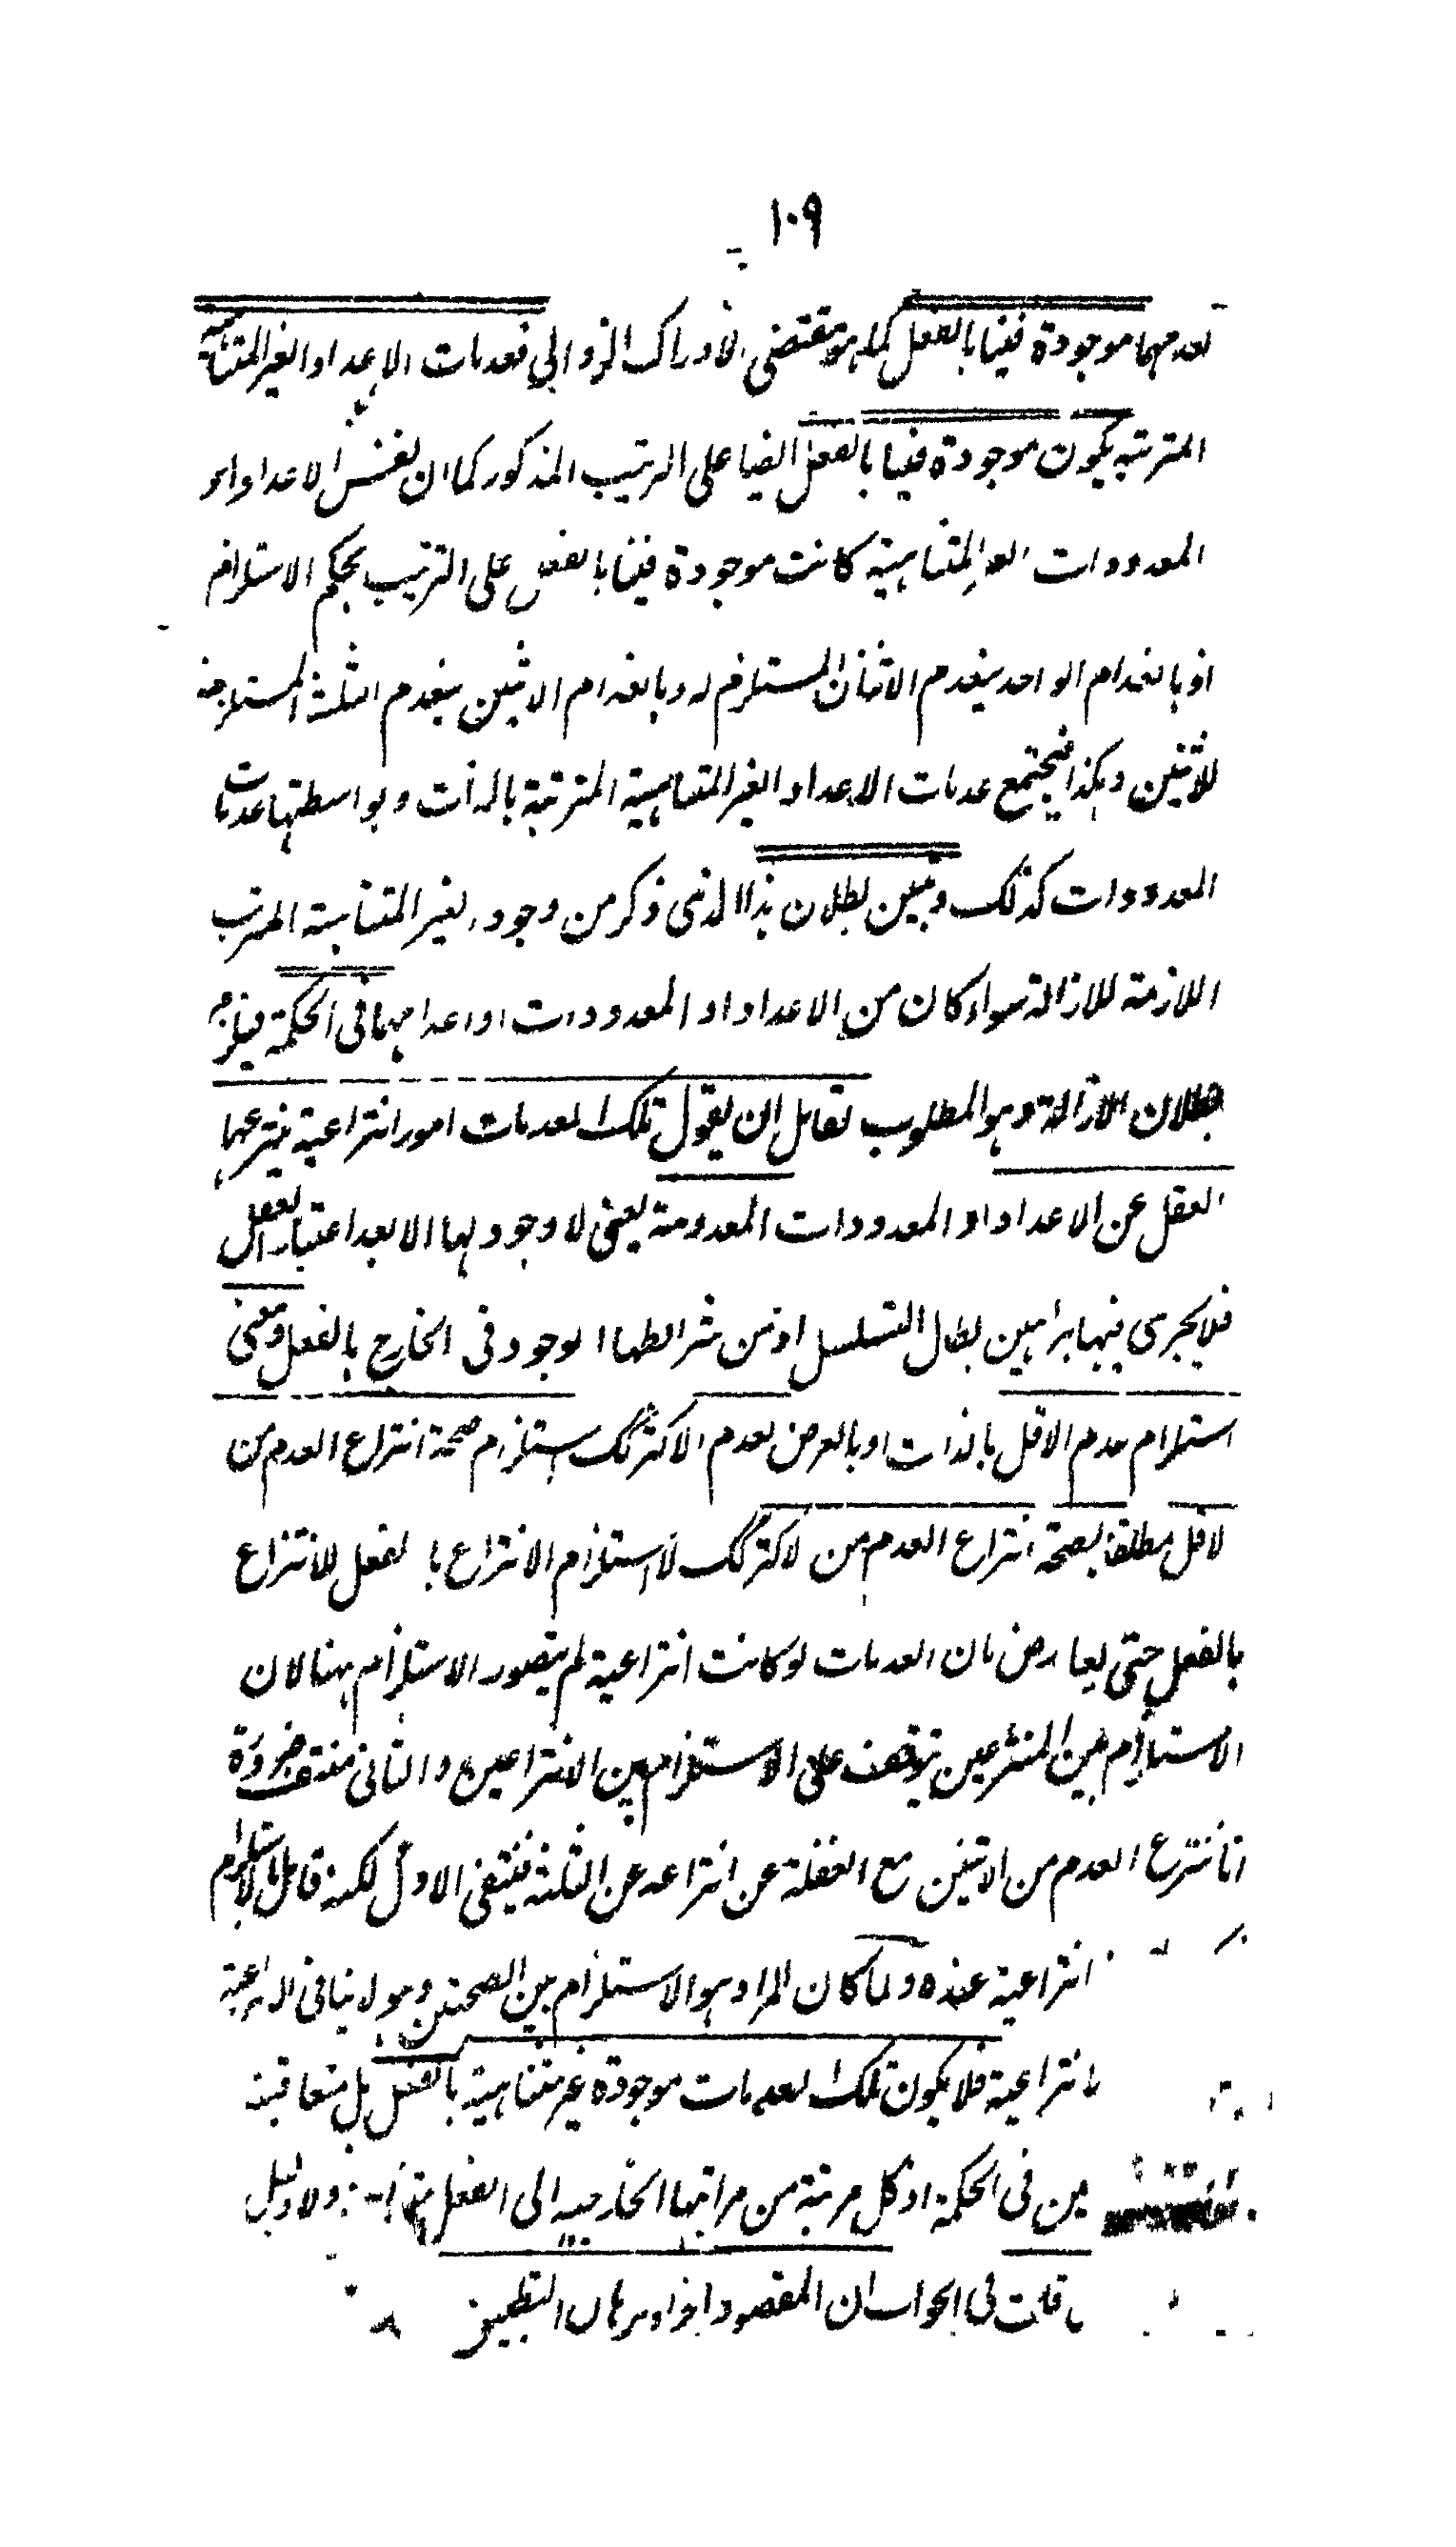 ١٠٩
لعدمهما موجودة فينا بالفعل كما هو مقتضى الادراك الزوالي فعدمات الاعداد الغير المتناهية
المترتبة يكون موجودة فينا بالفعل ايضا على الترتيب المذكور كما ان نفس الاعداد او
المعدودات الغير المتناهية كانت موجودة فينا بالفعل على الترتيب بحكم الاستلزام
اذ بانعدام الواحد ينعدم الاثنان المستلزم له وبانعدام الاثنين ينعدم الثلثة المستلزمة
للاثنين وهكذا فيجتمع عدمات الاعداد الغير المتناهية المترتبة بالذات وبواسطتها عدمات
المعدودات كذلك وتبين بطلان هذا الذى ذكر من وجود الغير المتناهية المترتب
اللازمة للازالة سواء كان من الاعداد او المعدودات او اعدامهما فى الحكمة فيلزم
بطلان الازالة وهو المطلوب لقائل ان يقول تلك العدمات امور انتزاعية ينتزعها
العقل عن الاعداد او المعدودات المعدومة يعنى لا وجود لها الا بعد اعتبار العقل
فلا يجرى فيها براهين ابطال التسلسل اذ من شرائطها الوجود فى الخارج بالفعل ومعنى
استلزام عدم الاقل بالذات او بالعرض لعدم الاكثر كك استلزام صحة انتزاع العدم من
لاقل مطلقا لصحة انتزاع العدم من لاكثر كك لا استلزام الانتزاع بالفعل للانتزاع
بالفعل حتى يعارض بان العدمات لو كانت انتزاعية لم يتصور الاستلزام بينها لان
الاستلزام بين المنتزعين يتوقف على الاستلزام بين الانتزاعين والثانى منتف ضرورة
انا ننتزع العدم من الاثنين مع الغفلة عن انتزاعه عن الثلثة فينتفى الاول لكنه قائل بالاستلزام
انتزاعية عنده ولما كان المراد هو الاستلزام بين الصحتين وهو لا ينافى الانتزاعية
انتزاعية فلا يكون تلك العدمات موجودة غير متناهية بالفعل بل متعاقبة
مين فى الحكمة اذ كل مرتبة من مراتبها الخارجيه الى الفعل ولا دليل
قلت فى الجواب ان المقصود اجراء برهان التطبيق